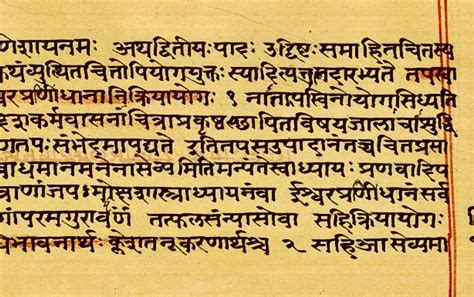 णेशायनमः अथद्वितीयःपादः उद्दिष्टःसमाहितचितस्य
कथंव्युत्थितचित्तोपियोगयुक्तःस्यादित्येतदारभ्यते तपस्वा
श्वरप्रणीधानानिक्रियायोगः १ नातपस्विनोयोगःसिध्यति
क्लेशकर्मवासनाचित्राप्रत्युपस्थापितविषयजालाचाशुद्धि
णतपःसंभेदमापद्यते इतितपसउपादानंतच्चचित्तप्रसा
बाधमानमनेनासेव्यमितिमन्यतेस्वाध्यायः प्रणवादिप
त्राणांजपःमोक्षशास्त्राध्यायनंवा ईश्वरप्रणीधानंसर्व
णांपरमगुरावर्पणं तत्फलसंन्यासोवा सहिक्रियायोगः
धिभावनार्थः क्लेशतनूकरणार्थश्च २ सहिआसेव्यमा